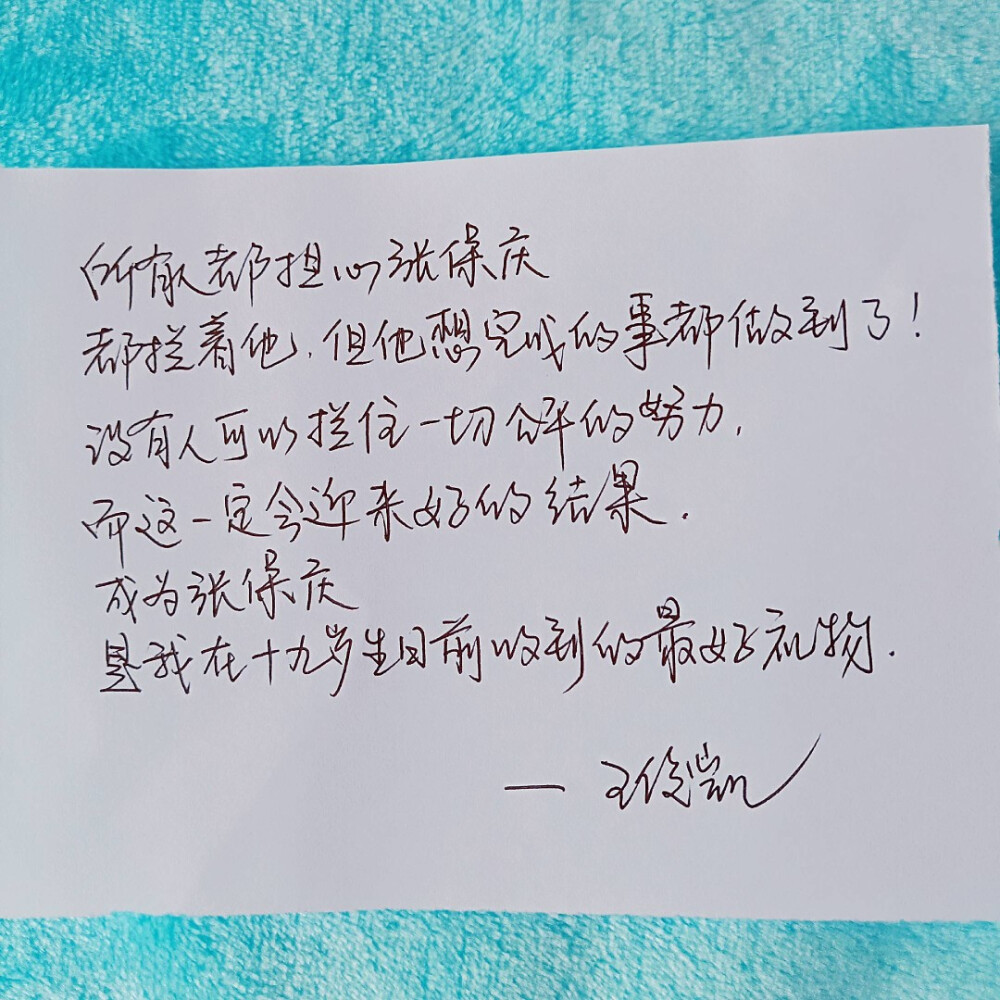 所有人都担心张保庆
都拦着他,但他想完成的事都做到了!
没有人可以拦住一切公平的努力,
而这一定会迎来好的结果.
成为张保庆
是我在十九岁生日前收到的最好礼物.
— 王俊凯